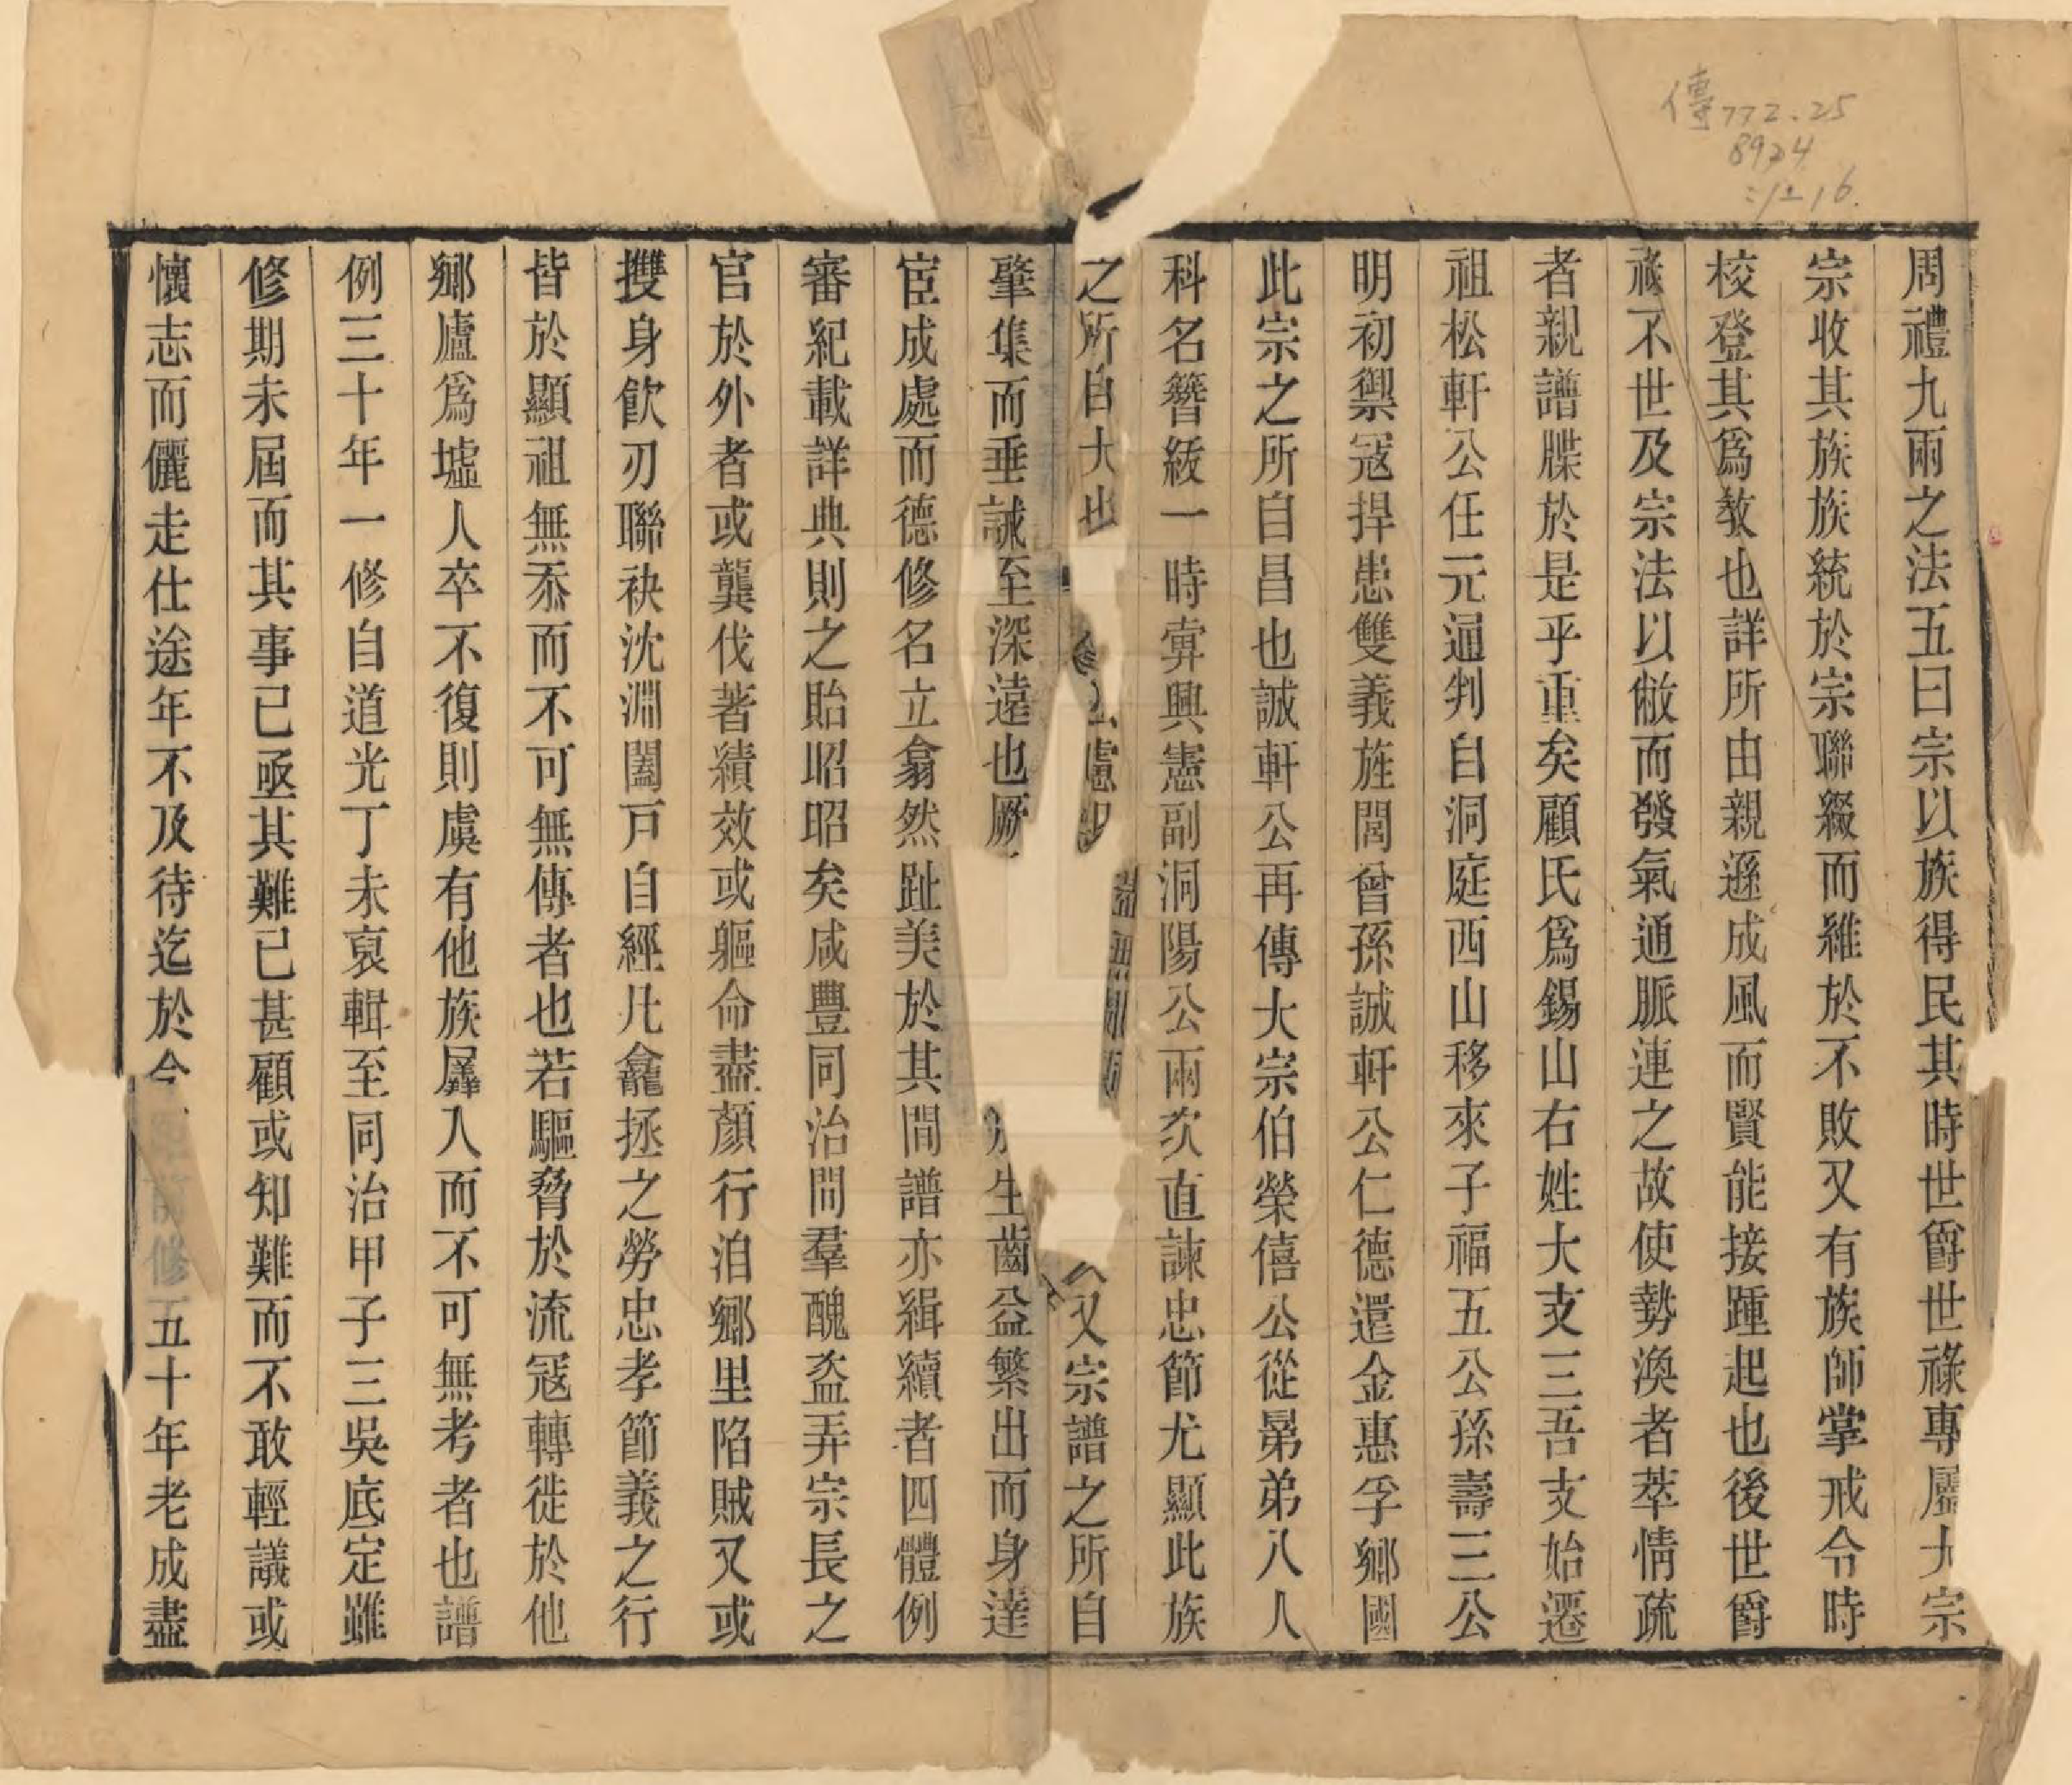 傳772.25
8924
:1-16
周禮九兩之法五曰宗以族得民其時世爵世祿專屬大宗
宗收其族族統於宗聯綴而維於不敗又有族師掌戒令時
校登其爲敎也詳所由親遜成風而賢能接踵起也後世爵
祿不世及宗法以敝而發氣通脈連之故使勢渙者萃情疏
者親譜牒於是乎重矣顧氏爲錫山右姓大支三吾支始遷
祖松軒公任元通判自洞庭西山移來子福五公孫壽三公
明初禦寇捍患雙義旌閭曾孫誠軒公仁德還金惠孚鄉國
此宗之所自昌也誠軒公再傳大宗伯榮僖公從晜弟八人
科名簪紱一時霁興憲副洞陽公兩次直諫忠節尤顯此族
之所自大也 慮 又宗譜之所自
肇集而垂誡至深遠也厥 生齒益繁出而身達
宦成處而德修名立翕然趾美於其間譜亦緝續者四體例
審紀載詳典則之貽昭昭矣咸豐同治間羣醜盜弄宗長之
官於外者或龔伐著績效或軀命盡顏行洎鄉里陷賊又或
㩳身飲刃聯袂沈淵闔戶自經凡龕拯之勞忠孝節義之行
皆於顯祖無忝而不可無傳者也若驅脅於流寇轉徙於他
鄉廬爲墟人卒不復則虞有他族羼入而不可無考者也譜
例三十年一修自道光丁未裒輯至同治甲子三吳底定雖
修期未屆而其事已亟其難已甚顧或知難而不敢輕議或
懷志而儷走仕途年不及待迄於今 前修五十年老成盡